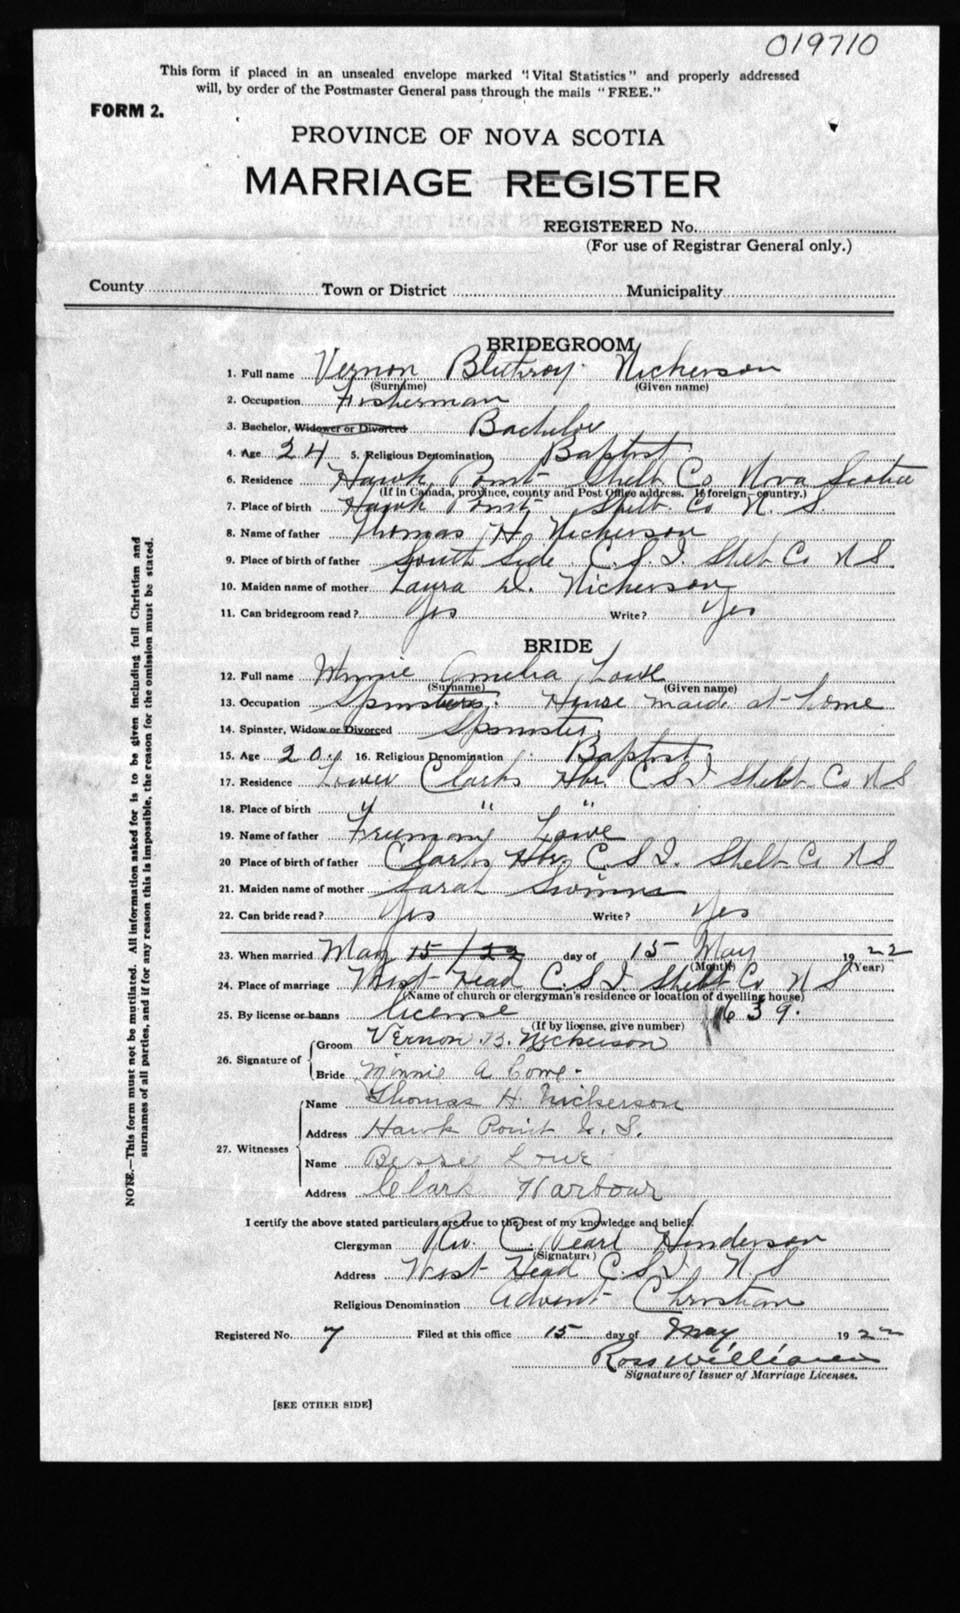 019710
This form if placed in an unsealed envelope marked "Vital Statistics" and properly addressed
will, by order of the Postmaster General pass through the mails "FREE."
FORM 2.
PROVINCE OF NOVA SCOTIA
MARRIAGE REGISTER
REGISTERED No.
(For use of Registrar General only.)
County Town or District Municipality
BRIDEGROOM
1. Full name Vernon Nickerson
(Surname) (Given name)
2. Occupation Fisherman
3. Bachelor, Widower or Divorced Bachelor
4. Age 24 5. Religious Denomination Baptist
6. Residence Hawk Point Shelb Co Nova Scotia
(If in Canada, province, county and Post Office address. If foreign—country.)
7. Place of birth Hawk Point Shelb Co N. S.
8. Name of father Thomas H. Nickerson
9. Place of birth of father South Side C. S. I. Shelb Co N S
10. Maiden name of mother Laura Nickerson
11. Can bridegroom read? Yes Write? Yes
BRIDE
12. Full name Minnie Amelia Lowe
(Surname) (Given name)
13. Occupation Spinster. House maid at home
14. Spinster, Widow or Divorced Spinster
15. Age 20 16. Religious Denomination Baptist
17. Residence Lower Clarks Hbr. C S I Shelb Co N S
18. Place of birth " " "
19. Name of father Freeman Lowe
20 Place of birth of father Clarks Hbr C. S I. Shelb Co N S
21. Maiden name of mother Sarah
22. Can bride read? Yes Write? Yes
23. When married May 15/22 day of 15 May 1922
(Month) (Year)
24. Place of marriage West Head C. S I Shelb Co N S
(Name of church or clergyman's residence or location of dwelling house)
25. By license or banns license 639.
(If by license, give number)
26. Signature of
Groom Vernon B. Nickerson
Bride Minnie A Lowe.
27. Witnesses
Name Thomas H. Nickerson
Address Hawk Point N. S.
Name Lowe
Address Clark Harbour
I certify the above stated particulars are true to the best of my knowledge and belief.
Clergyman Rev. C. Pearl Henderson
(Signature)
Address West Head C. S. I. N. S
Religious Denomination Advent Christian
Registered No. 7 Filed at this office 15 day of May 1922
Ross Williams
Signature of Issuer of Marriage Licenses.
[SEE OTHER SIDE]
NOTE.—This form must not be mutilated. All information asked for is to be given including full Christian and
surnames of all parties, and if for any reason this is impossible, the reason for the omission must be stated.